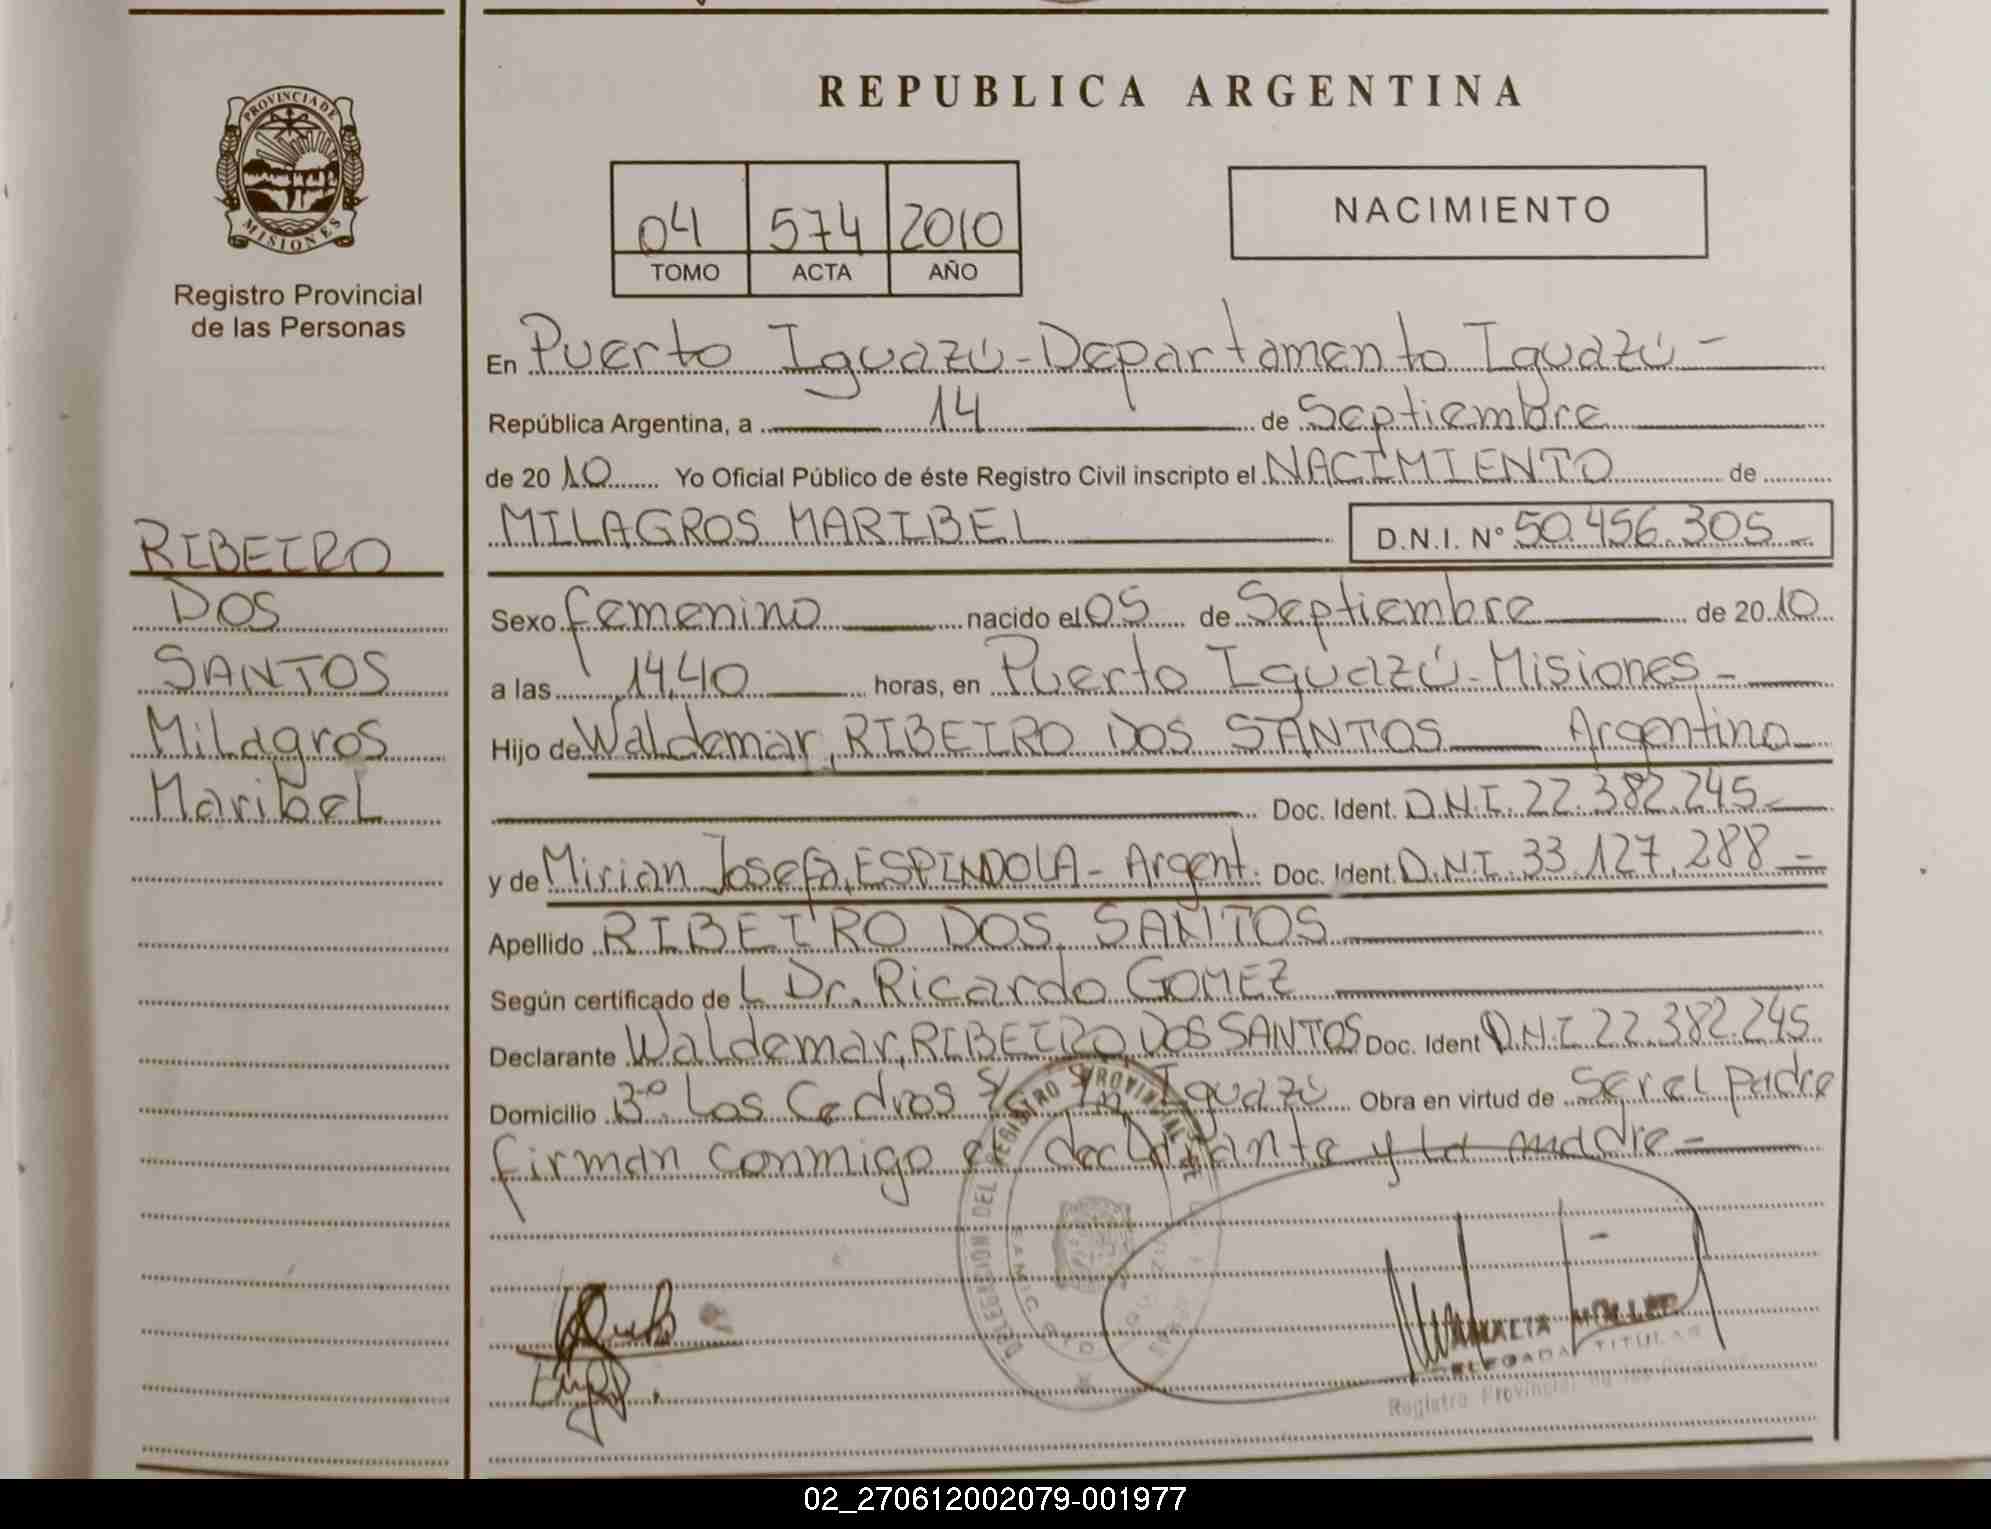 PROVINCIA DE
MISIONES
Registro Provincial
de las Personas
RIBEIRO
DOS
SANTOS
Milagros
Maribel
REPUBLICA ARGENTINA
04 574 2010
TOMO ACTA AÑO
NACIMIENTO
En Puerto Iguazú - Departamento Iguazú -
República Argentina, a 14 de Septiembre
de 2010 Yo Oficial Público de éste Registro Civil inscripto el NACIMIENTO de
MILAGROS MARIBEL D.N.I. Nº 50.456.305
Sexo femenino nacido el 05 de Septiembre de 2010
a las 14,40 horas, en Puerto Iguazú - Misiones -
Hijo de Waldemar, RIBEIRO DOS SANTOS Argentino
Doc. Ident. D.N.I. 22.382.245
y de Mirian Josefa, ESPINDOLA - Argent. Doc. Ident. D.N.I. 33.127.288
Apellido RIBEIRO DOS SANTOS
Según certificado de L Dr. Ricardo GOMEZ
Declarante Waldemar, RIBEIRO DOS SANTOS Doc. Ident D.N.I 22.382.245
Domicilio Bº. Los Cedros S/ Iguazú Obra en virtud de Ser el padre
firman conmigo el declarante y la madre -
DELEGACION DEL REGISTRO PROVINCIAL DE
AMALIA MÜLLER
DELEGADA TITULAR
Registro Provincial de las
02_270612002079-001977